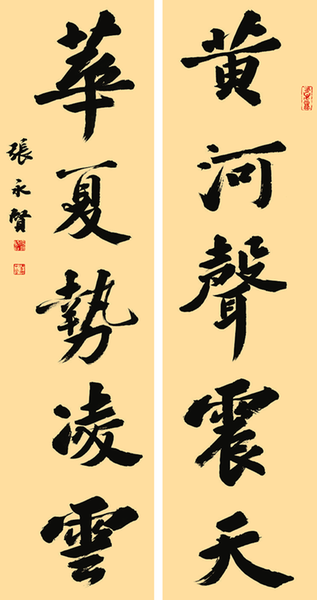 黄河聲震天
華夏勢凌雲
張永賢